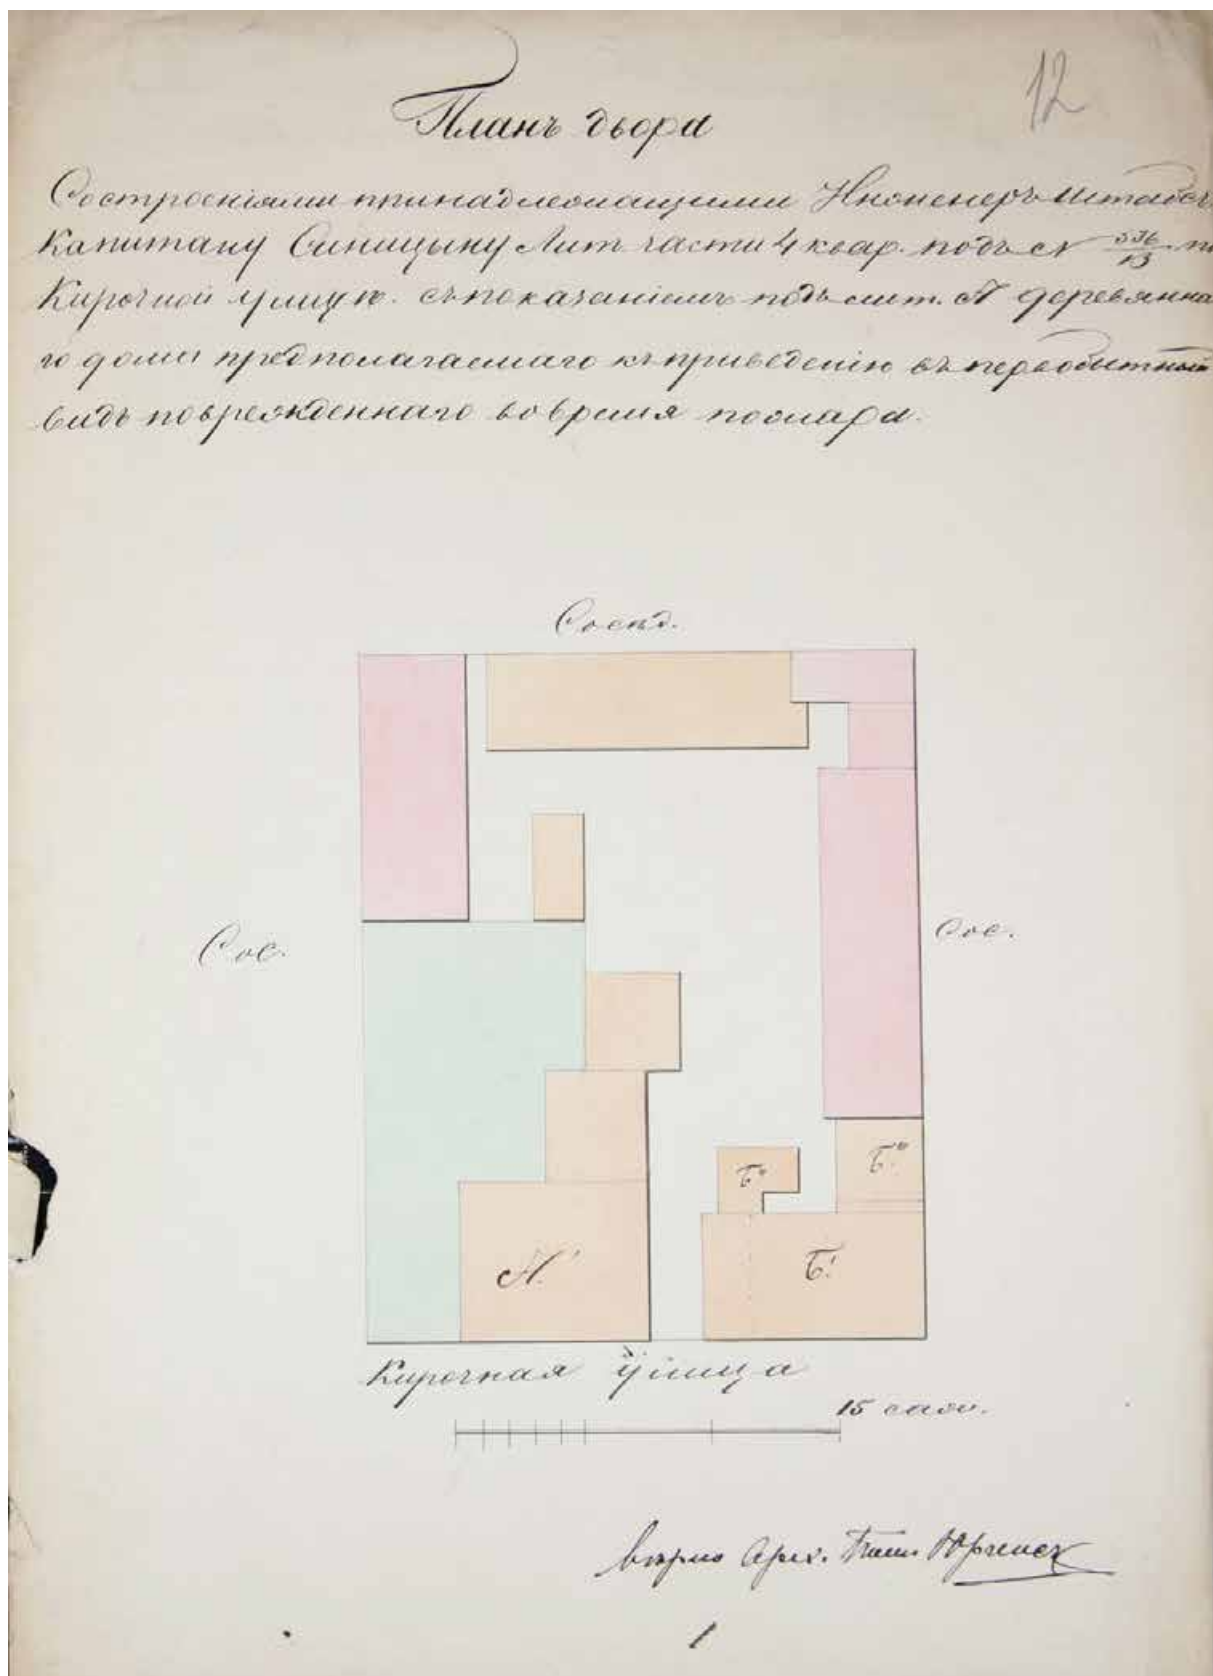 12
Планъ двора
Состроеніями принадлежащими Инженеръ Штабсъ
Капитану Синицыну Лит. части 4 квар. подъ N 336/13 по
Кирочной улицѣ. съ показаніемъ подъ лит. А деревянна
го дома предполагаемаго къ приведенію въ первобытный
видъ поврежденнаго во время пожара.
Сосѣд.
Сос.
Сос.
Б"
Б'"
А'
Б'
Кирочная Улица
15 саж.
вѣрно Арх. Юргенсъ
1